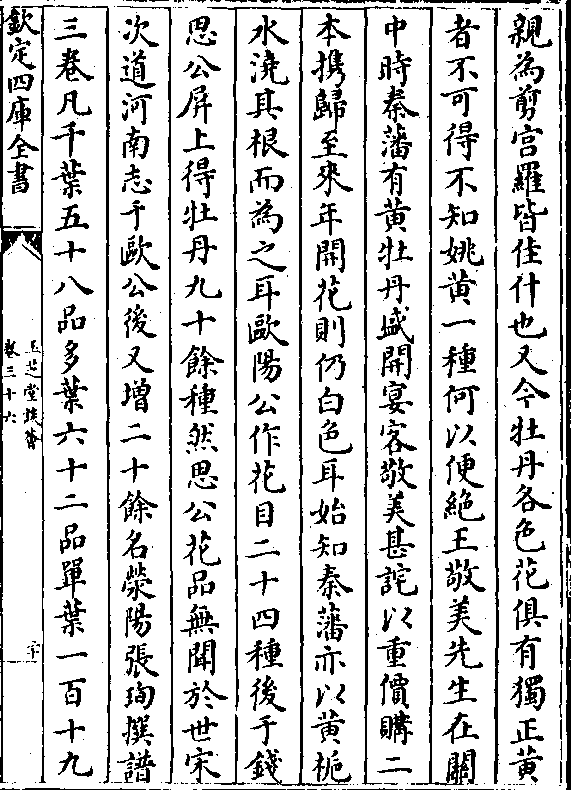 親為剪宫羅皆佳什也又今牡丹各色花俱有獨正黄
者不可得不知姚黄一種何以便絶王敬美先生在關
中時秦藩有黄牡丹盛開宴客敬美甚詫以重價購二
本携歸至來年開花則仍白色耳始知秦藩亦以黄梔
水澆其根而為之耳歐陽公作花目二十四種後于錢
思公屏上得牡丹九十餘種然思公花品無聞於世宋
次道河南志于歐公後又增二十餘名滎陽張珣撰譜
三卷凡千葉五十八品多葉六十二品單葉一百十九
欽定四庫全書
玉芝堂談薈
卷三十六